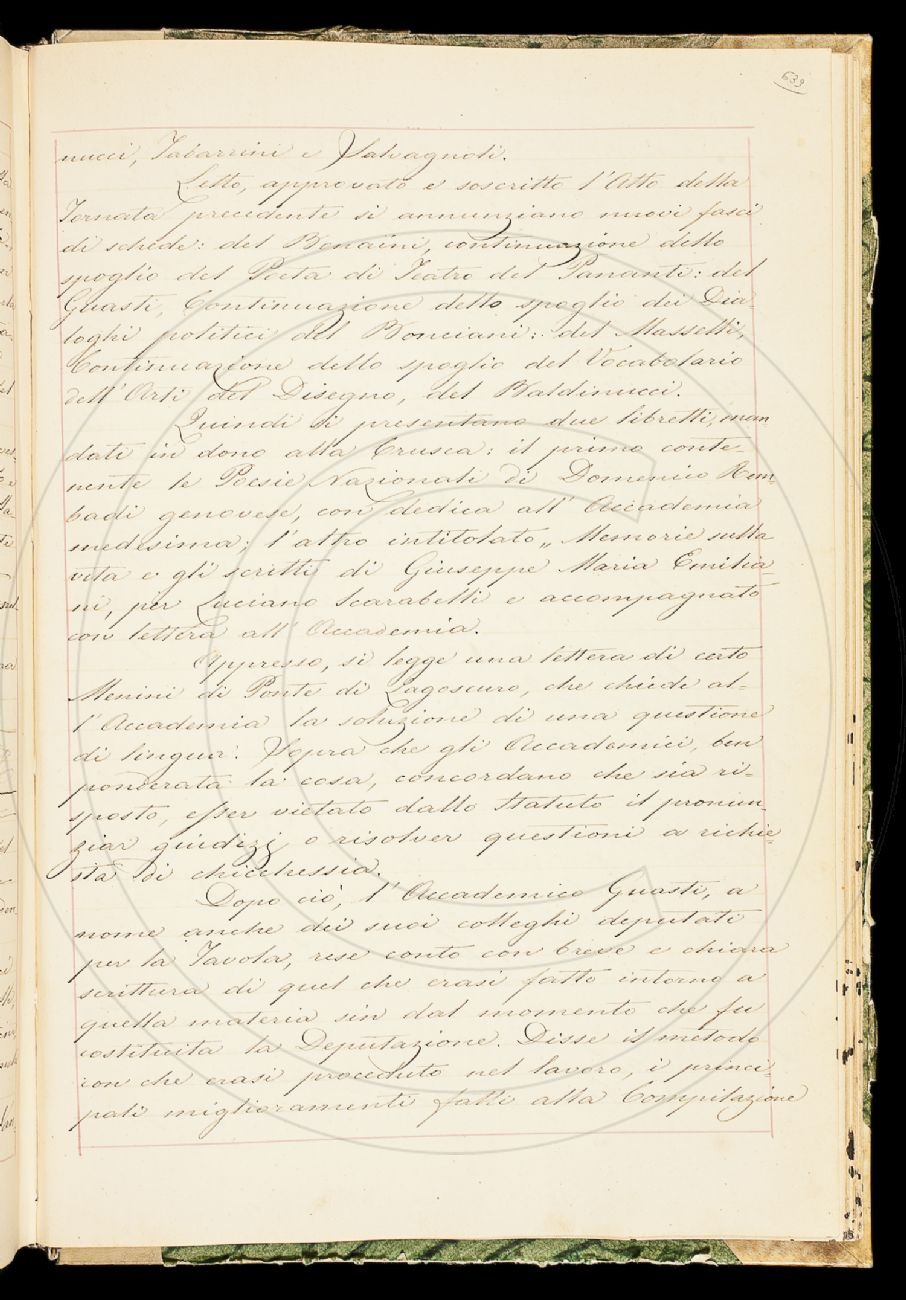 633
nucci, Tabarrini e Salvagnoli.
Letto, approvato e soscritto l'Atto della
Tornata precedente si annunziano nuovi fasci
di schede: del Bonaini, continuazione dello
spoglio del Poeta di Teatro del Pananti: del
Guasti, Continuazione dello spoglio dei Dia-
loghi politici del Bonciani: del Masselli,
Continuazione dello spoglio del Vocabolario
dell'Arti del Disegno, del Baldinucci.
Quindi si presentano due libretti, man
dati in dono alla Crusca: il primo conte-
nente le Poesie Nazionali di Domenico Rem
badi genovese, con dedica all'Accademia
medesima; l'altro intitolato „ Memorie sulla
vita e gli scritti di Giuseppe Maria Emilia-
ni, per Luciano Scarabelli e accompagnato
con lettera all'Accademia.
Appresso, si legge una lettera di certo
Menini di Ponte di Lagoscuro, che chiede al-
l'Accademia la soluzione di una questione
di lingua. Sopra che gli Accademici, ben
ponderata la cosa, concordano che sia ri-
sposto, esser vietato dallo Statuto il pronun-
ziar giudizj o risolver questioni a richie-
sta di chicchessia.
Dopo ciò, l'Accademico Guasti, a
nome anche dei suoi colleghi deputati
per la Tavola, rese conto con breve e chiara
scrittura di quel che erasi fatto intorno a
quella materia sin dal momento che fu
costituita la Deputazione. Disse il metodo
con che erasi proceduto nel lavoro, i princi-
pali miglioramenti fatti alla Compilazione